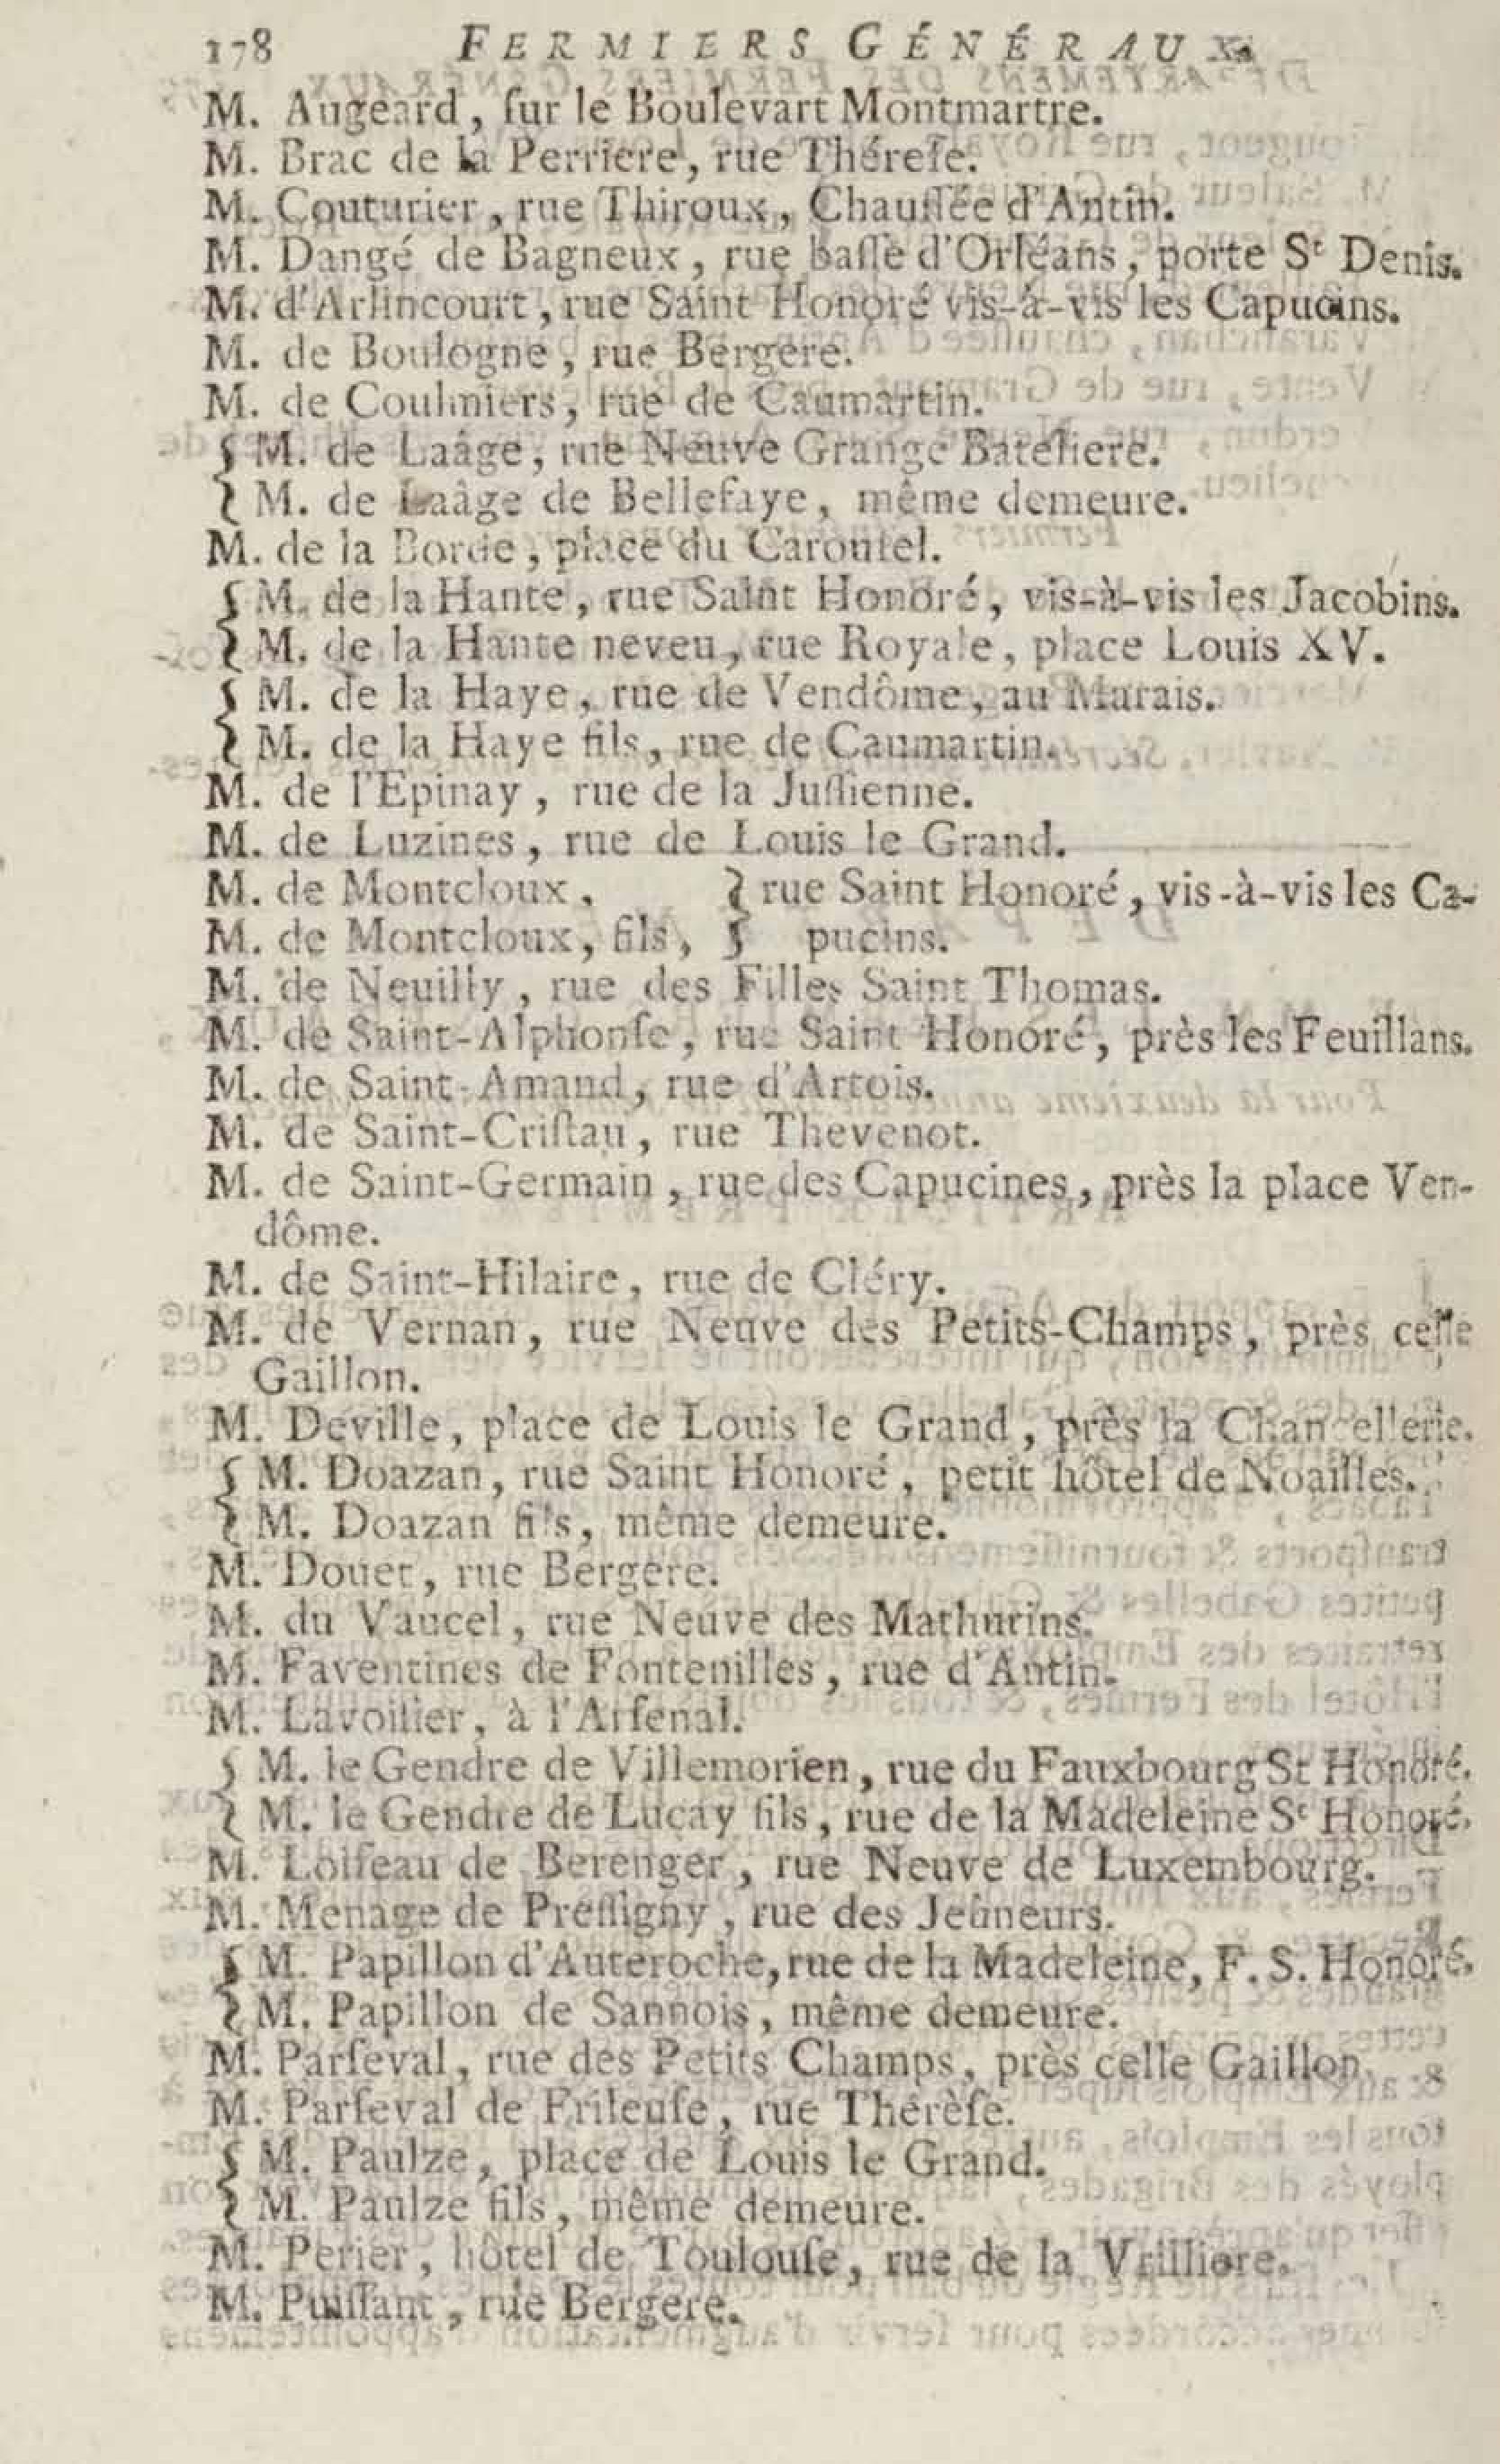 178 FERMIERS GÉNÉRAUX.
M. Augeard, ſur le Boulevart Montmartre.
M. Brac de la Perriere, rue Théreſe.
M. Couturier, rue Thiroux, Chauſſée d'Antin.
M. Dangé de Bagneux, rue baſſe d'Orléans, porte St Denis.
M. d'Arlincourt, rue Saint Honoré vis-à-vis les Capucins.
M. de Boulogne, rue Bergere.
M. de Coulmiers, rue de Caumartin.
{ M. de Laâge, rue Neuve Grange Bateliere.
{ M. de Laâge de Bellefaye, même demeure.
M. de la Borde, place du Carouſel.
{ M. de la Hante, rue Saint Honoré, vis-à-vis les Jacobins.
{ M. de la Hante neveu, rue Royale, place Louis XV.
{ M. de la Haye, rue de Vendôme, au Marais.
{ M. de la Haye fils, rue de Caumartin.
M. de l'Epinay, rue de la Juſſienne.
M. de Luzines, rue de Louis le Grand.
M. de Montcloux, } rue Saint Honoré, vis-à-vis les Ca-
M. de Montcloux, fils, } pucins.
M. de Neuilly, rue des Filles Saint Thomas.
M. de Saint-Alphonſe, rue Saint Honoré, près les Feuillans.
M. de Saint-Amand, rue d'Artois.
M. de Saint-Criſtau, rue Thevenot.
M. de Saint-Germain, rue des Capucines, près la place Ven-
dôme.
M. de Saint-Hilaire, rue de Cléry.
M. de Vernan, rue Neuve des Petits-Champs, près celle
Gaillon.
M. Deville, place de Louis le Grand, près la Chancellerie.
{ M. Doazan, rue Saint Honoré, petit hôtel de Noailles.
{ M. Doazan fils, même demeure.
M. Douet, rue Bergere.
M. du Vaucel, rue Neuve des Mathurins.
M. Faventines de Fontenilles, rue d'Antin.
M. Lavoiſier, à l'Arſenal.
{ M. le Gendre de Villemorien, rue du Fauxbourg St Honoré.
{ M. le Gendre de Luçay fils, rue de la Madeleine St Honoré.
M. Loiſeau de Berenger, rue Neuve de Luxembourg.
M. Menage de Preſſigny, rue des Jeûneurs.
{ M. Papillon d'Auteroche, rue de la Madeleine, F. S. Honoré.
{ M. Papillon de Sannois, même demeure.
M. Parſeval, rue des Petits Champs, près celle Gaillon.
M. Parſeval de Frileuſe, rue Thérèſe.
{ M. Paulze, place de Louis le Grand.
{ M. Paulze fils, même demeure.
M. Perier, hôtel de Toulouſe, rue de la Vrilliere.
M. Puiſſant, rue Bergere.